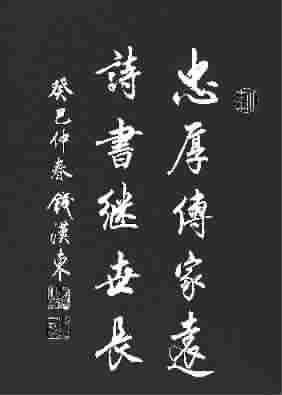 忠厚傳家遠
詩書继世長
癸巳仲春錢漢東